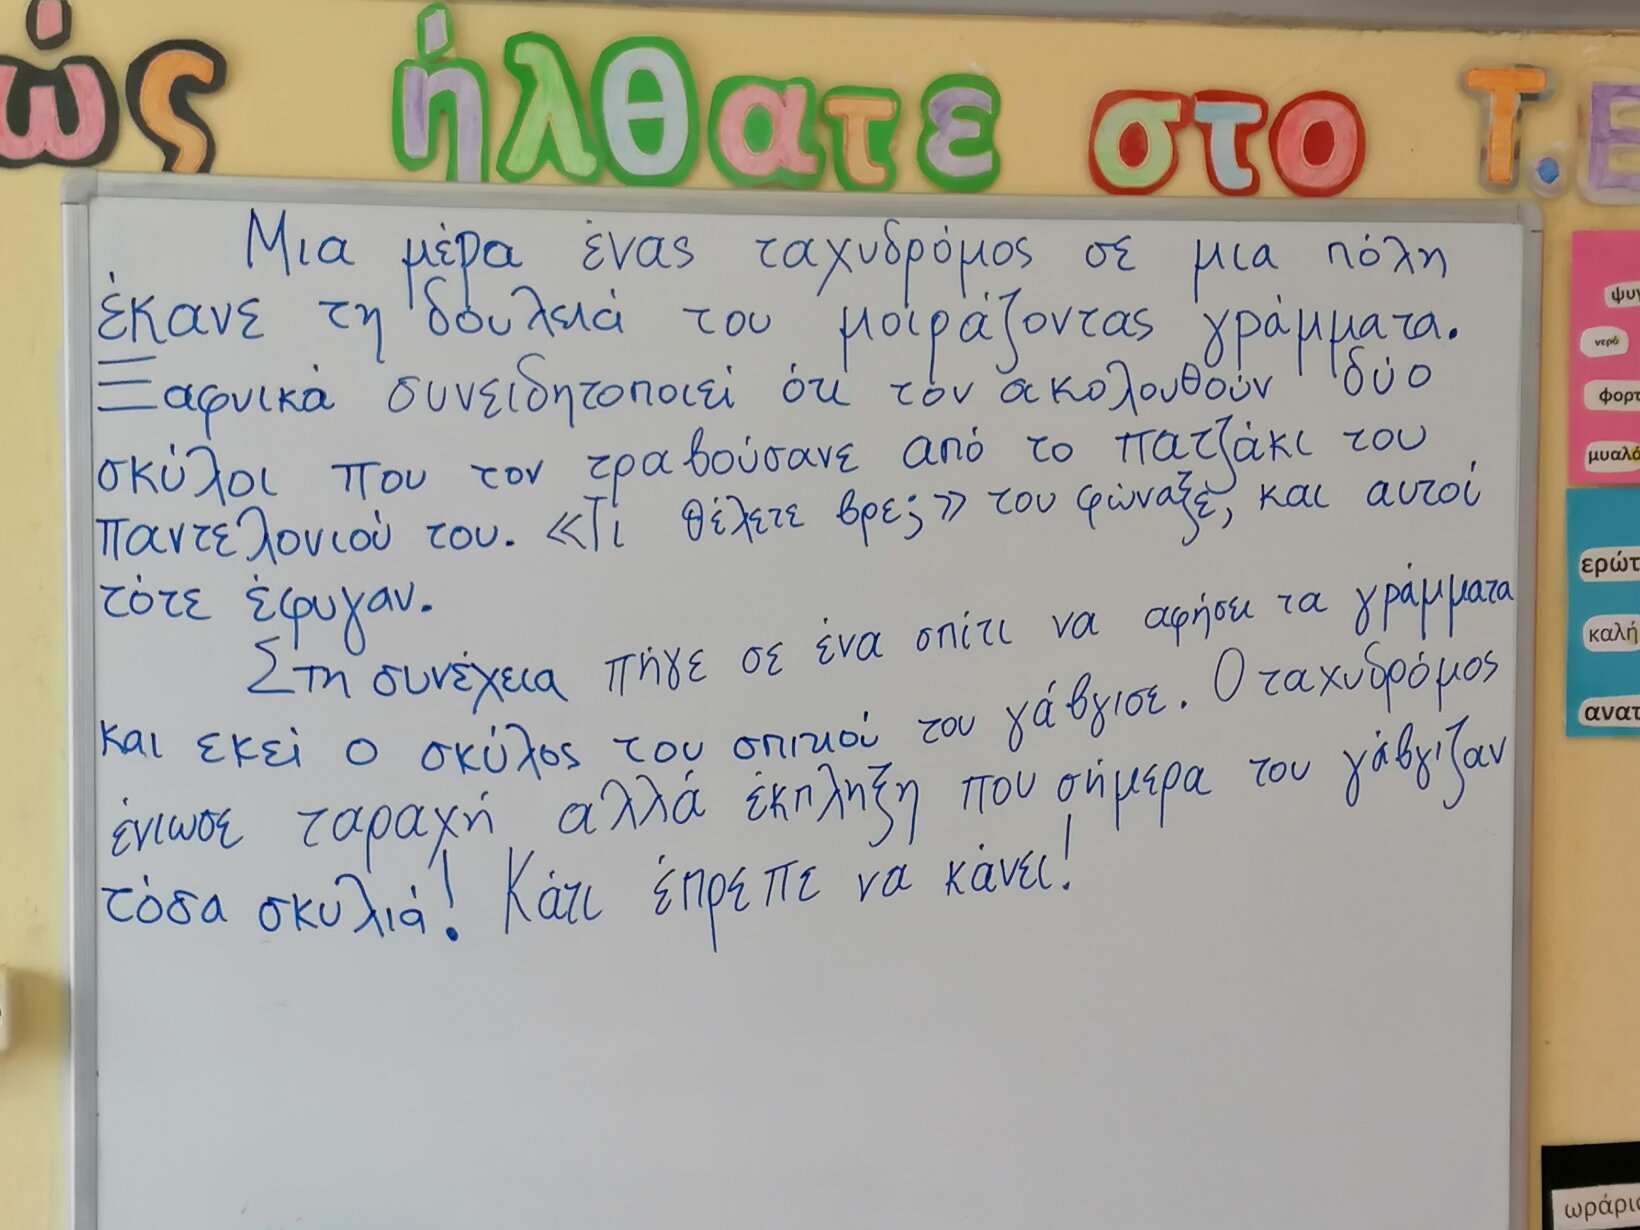 ώς ήλθατε στο Τ.Ε
Μια μέρα ένας ταχυδρόμος σε μια πόλη
έκανε τη δουλειά του μοιράζοντας γράμματα.
Ξαφνικά συνειδητοποιεί ότι τον ακολουθούν δύο
σκύλοι που τον τραβούσανε από το πατζάκι του
παντελονιού του. «Τι θέλετε βρε;» του φώναξε, και αυτοί
τότε έφυγαν.
Στη συνέχεια πήγε σε ένα σπίτι να αφήσει τα γράμματα
και εκεί ο σκύλος του σπιτιού του γάβγισε. Ο ταχυδρόμος
ένιωσε ταραχή αλλά έκπληξη που σήμερα του γάβγιζαν
τόσα σκυλιά! Κάτι έπρεπε να κάνει!
νερό
φορτ
μυαλό
ερώτ
καλή
ανατ